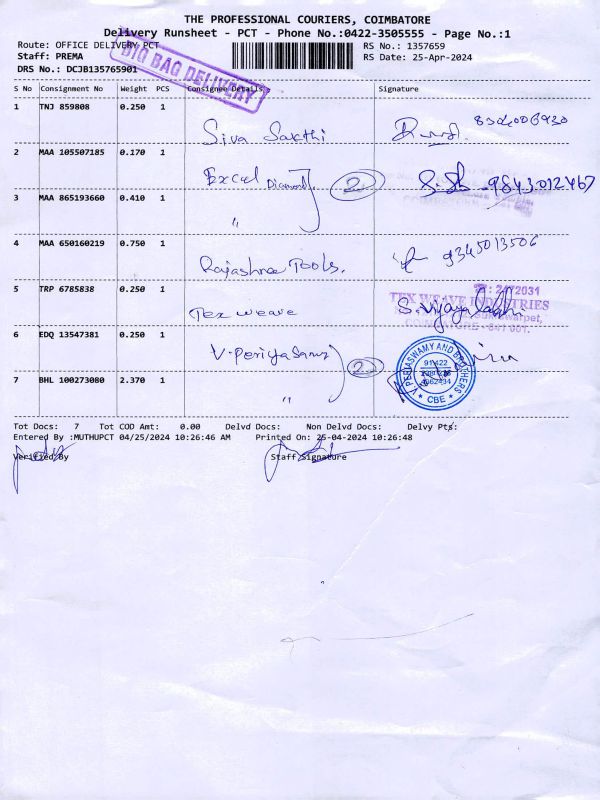 THE PROFESSIONAL COURIERS, COIMBATORE
Delivery Runsheet - PCT - Phone No.:0422-3505555 - Page No.:1
Route: OFFICE DELIVERY PCT
RS No.: 1357659
Staff: PREMA
RS Date: 25-Apr-2024
DRS No.: DCJB135765901
BIG BAG DELIVERY
S No Consignment No Weight PCS Consignee Details Signature
1 TNJ 859808 0.250 1 Siva Sakthi
2 MAA 105507185 0.170 1 Excel Diamond 2 9843012467
3 MAA 865193660 0.410 1 "
4 MAA 650160219 0.750 1 Rajashree Tools. 9345013506
5 TRP 6785838 0.250 1 Tex weave S. Vijayalakhi
TEX WEAVE INDUSTRIES
COIMBATORE - 641 001.
6 EDQ 13547381 0.250 1 V. Periyasamy 2
V. PERIASWAMY AND BROTHERS
CBE
7 BHL 100273080 2.370 1 "
Tot Docs: 7 Tot COD Amt: 0.00 Delvd Docs: Non Delvd Docs: Delvy Pts:
Entered By :MUTHUPCT 04/25/2024 10:26:46 AM Printed On: 25-04-2024 10:26:48
Verified By Staff Signature